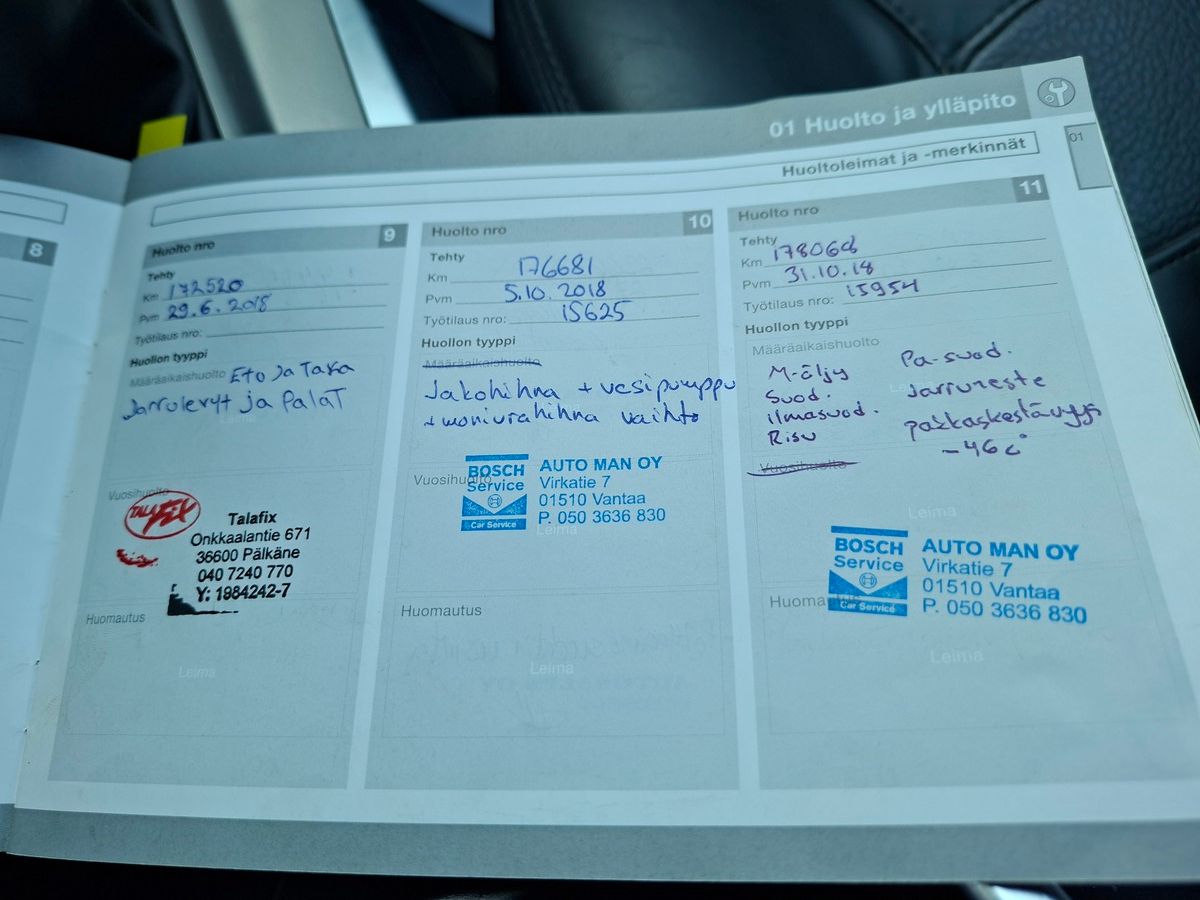 01 Huolto ja ylläpito
01
Huoltoleimat ja -merkinnät
8
Huolto nro 9
Tehty
Km 172520
Pvm 29.6.2018
Työtilaus nro:
Huollon tyyppi
Määräaikaishuolto Eto ja Taka
Jarrulevyt ja Palat
Vuosihuolto
TALAFIX
Talafix
Onkkaalantie 671
36600 Pälkäne
040 7240 770
Y: 1984242-7
Huomautus
Leima
Huolto nro 10
Tehty
Km 176681
Pvm 5.10.2018
Työtilaus nro: 15625
Huollon tyyppi
Määräaikaishuolto
Jakohihna + vesipumppu
+ moniurahihna vaihto
Vuosihuolto
BOSCH
Service
Car Service
AUTO MAN OY
Virkatie 7
01510 Vantaa
P. 050 3636 830
Leima
Huomautus
Leima
Huolto nro 11
Tehty
Km 178068
Pvm 31.10.18
Työtilaus nro: 15954
Huollon tyyppi
Määräaikaishuolto
M-öljy
Suod.
ilmasuod.
Risu
Pa-suod.
Jarruneste
pakkaskestävyys
-46c°
Vuosihuolto
Leima
BOSCH
Service
Car Service
AUTO MAN OY
Virkatie 7
01510 Vantaa
P. 050 3636 830
Huomautus
Leima